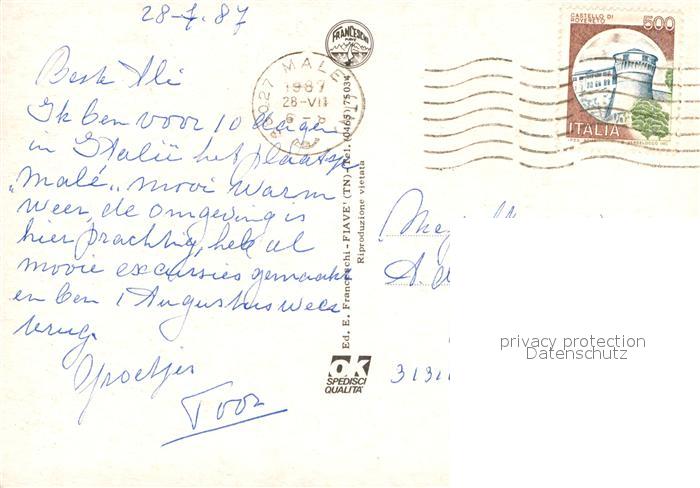 28-7.87
Beste Ali
Ik ben voor 10 dagen
in Italië het plaatsje
„Malé„ mooi warm
weer, de omgeving is
hier prachtig, heb al
mooie excursies gemaakt
en ben 1 Augustus weer
terug.
Groetjes
Toos
FRANCESCHI
FIAVE
38027 MALE'
1987
28-VII
Ed. E. Franceschi - FIAVE' (TN) - Tel. (0465) 75034
Riproduzione vietata
OK
SPEDISCI
QUALITA'
CASTELLO DI
ROVERETO
500
ITALIA
Mej
A. d
3131
privacy protection
Datenschutz